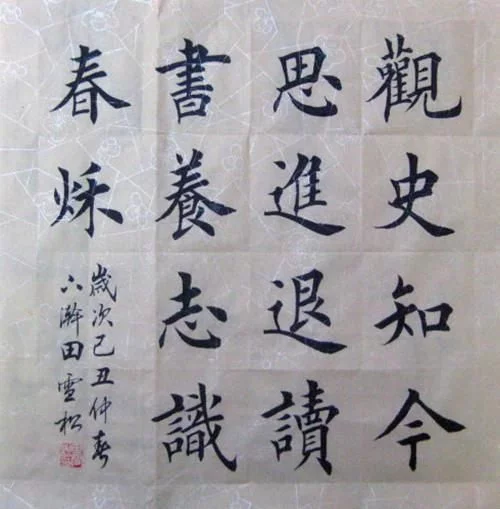 觀史知今
思進退讀
書養志識
春秌
歲次己丑仲春
六瀞田雪松